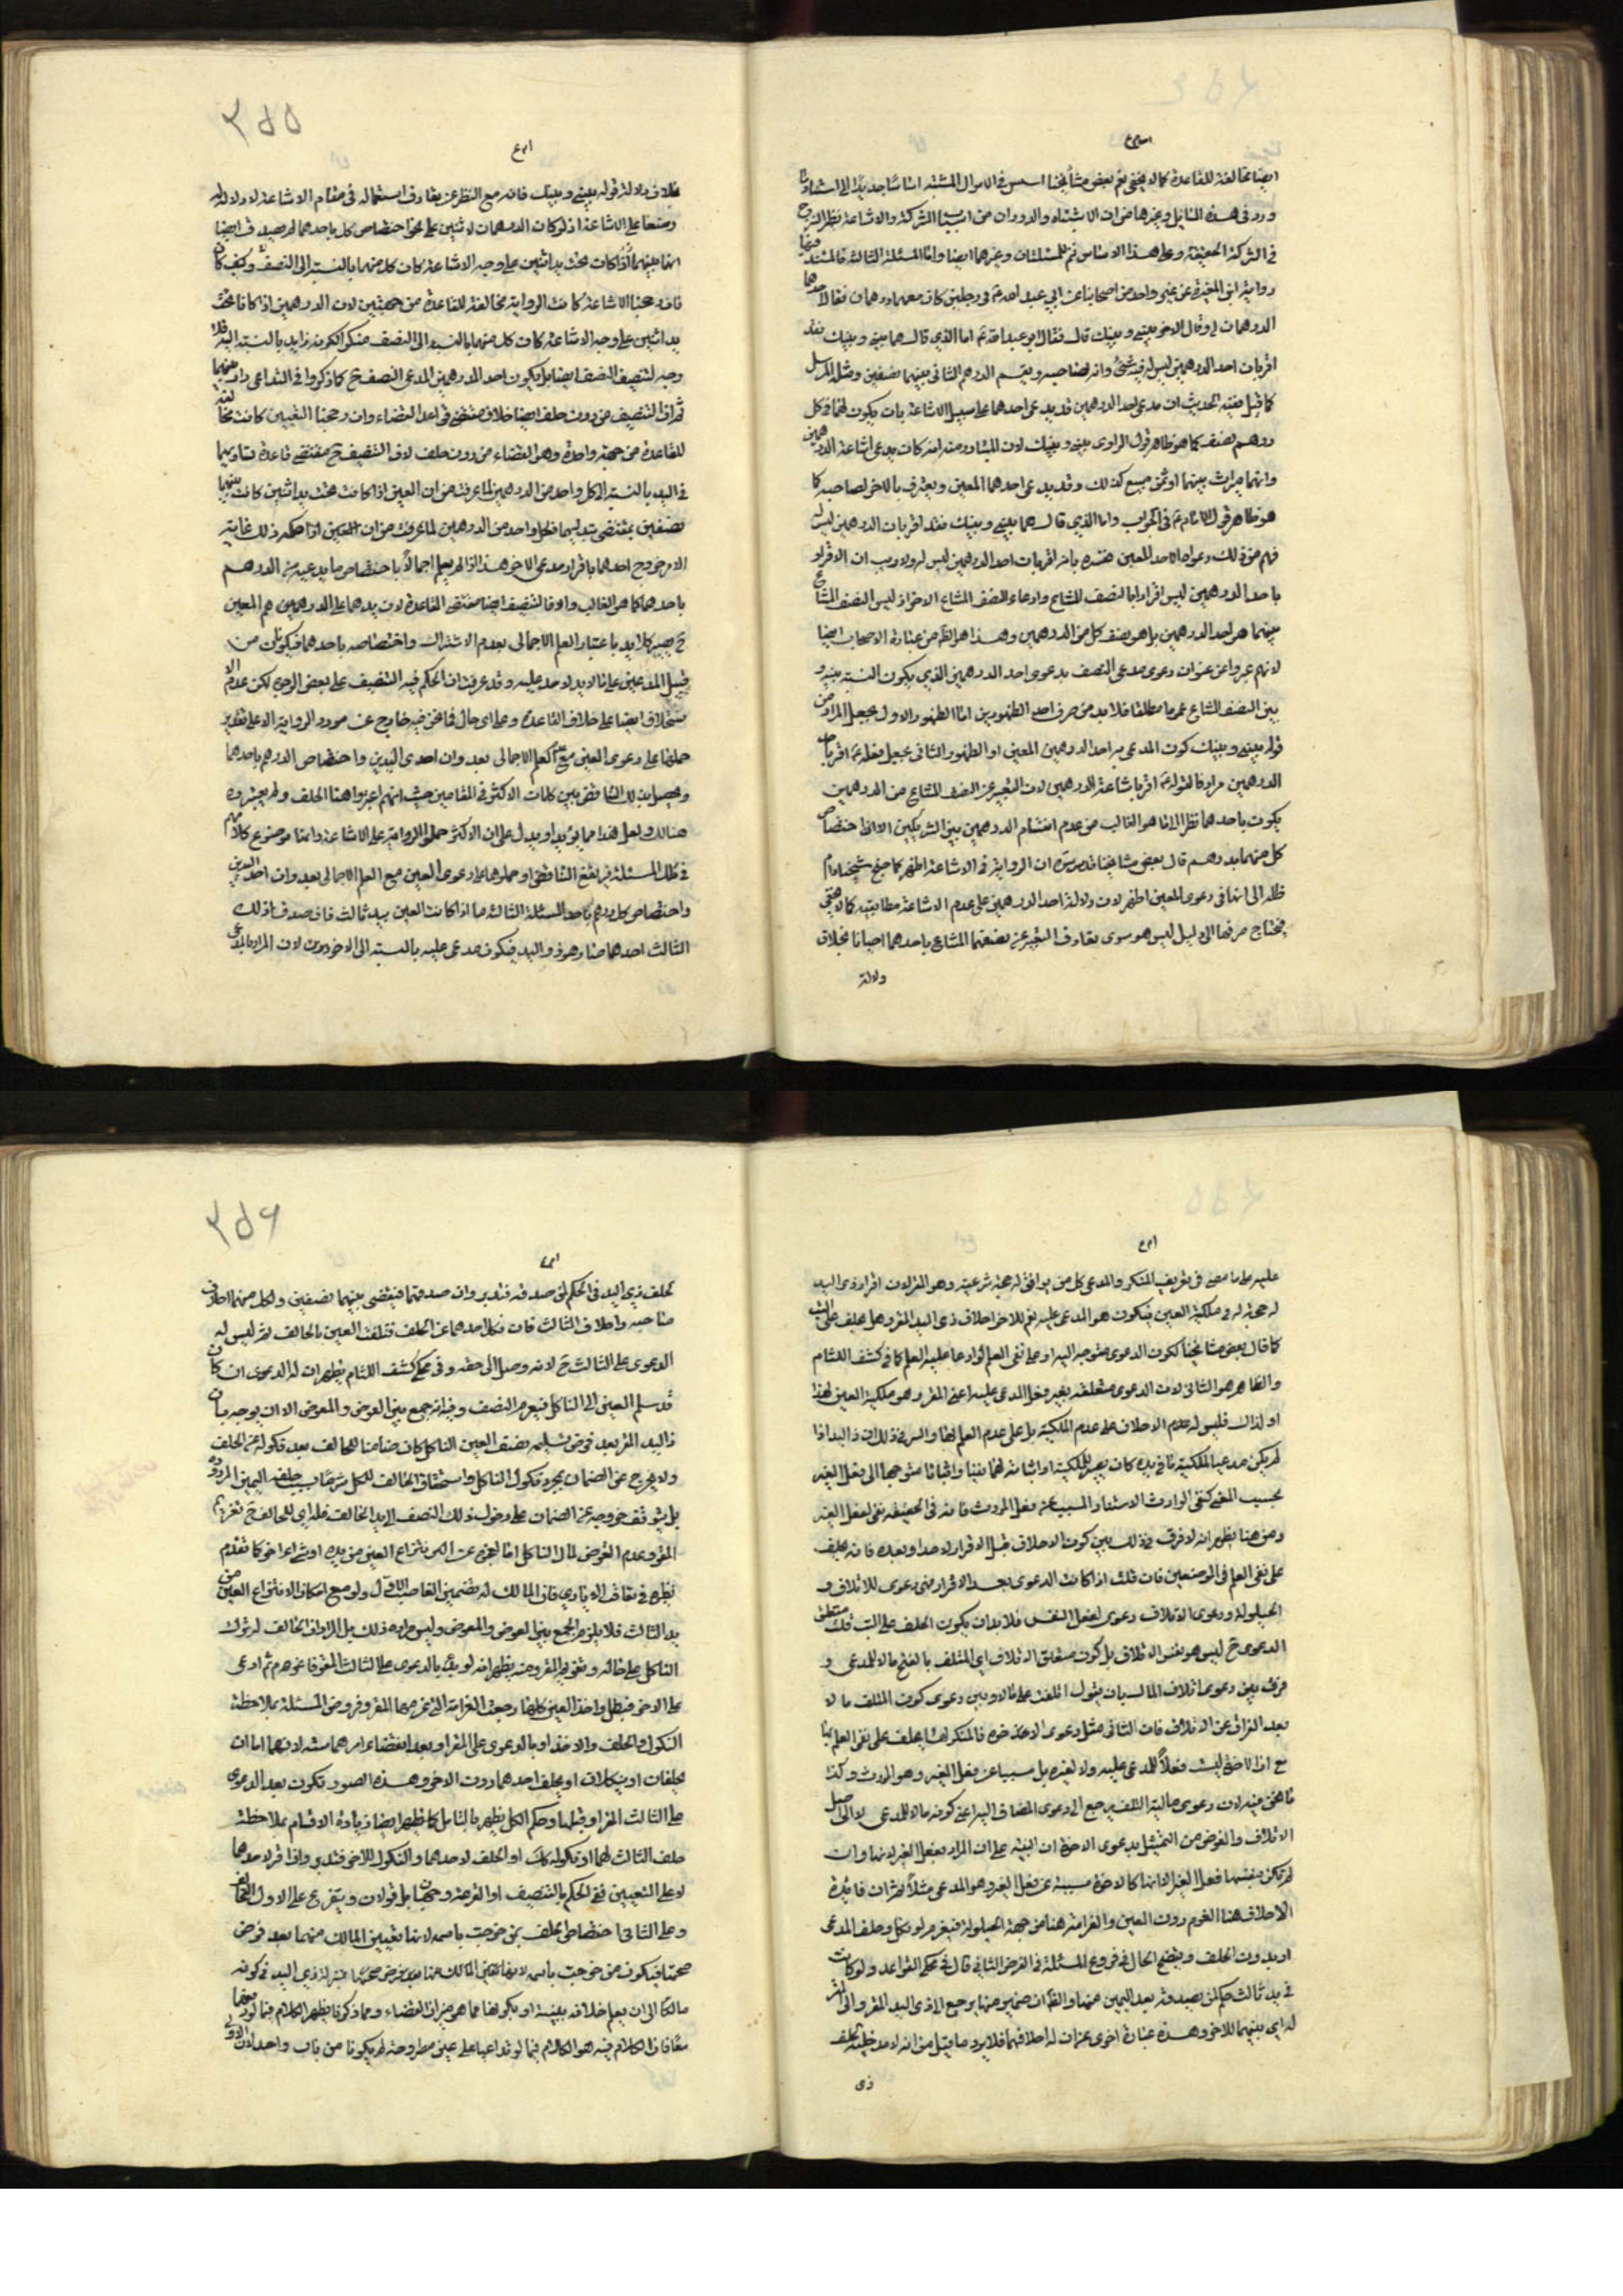 ايضا مخالفة للقاعدة كما لا يخفى ثم بعض مشايخنا اسس في الاموال المشتبه اساسا جديدا
ورد في هذه المسايل وغيرها من ان الاشتباه والدوران من اسباب الشركة والاشاعة نظر المزج
في الشركة الحقيقة وعلى هذا الاساس تمم المسئلتان وغيرهما ايضا واما المسئلة الثالثة فالمستند فيها
رواية ابن المغيرة عن غير واحد من اصحابنا عن ابي عبد الله ع في رجلين كان معهما درهمان فقال احدهما
الدرهمان لي وقال الاخر بيني وبينك قال فقال ابو عبد الله ع اما الذي قال هما بيني وبينك فقد
اقر بان احد الدرهمين ليس له فيه شئ وانه لصاحبه ويقسم الدرهم الثاني بينهما نصفين ومثله المرسل
كما قيل فقيه الحديث ان مدعي احد الدرهمين قد يدعى احدهما على سبيل الاشاعة بان يكون لهما في كل
درهم نصف كما هو ظاهر قول الراوى بيني وبينك لان المتبادر منه انه كان يدعى اشاعة الدرهمين
وانهما ميراث بينهما او ثمن مبيع كذلك وقد يدعى احدهما المعين ويعترف بالاخر لصاحبه كما
هو ظاهر قول الامام ع في الجواب واما الذي قال هما بيني وبينك فقد اقر بان الدرهمين ليس له
فهم من ذلك دعواه لاحد المعين فقره بانه اقر بان احد الدرهمين ليس له ولا ريب ان الاقرار
باحد الدرهمين ليس اقرارا بالنصف المشاع وادعاء للنصف المشاع الاخر اذ ليس النصف المشاع
بينهما هو احد الدرهمين بل هو نصف كل من الدرهمين وهذا هو الظ من عبارة الاصحاب ايضا
لانهم عبروا عن عنوان دعوى مدعى النصف بدعوى احد الدرهمين الذي يكون النسبة بينه و
بين النصف المشاع عموما مطلقا فلا بد من صرف احد الظهورين اما الظهور الاول بجعل المراد من
قوله بيني وبينك كون المدعى به احد الدرهمين المعين او الظهور الثاني بجعل قوله ع اقر بان
الدرهمين مرادفا لقوله ع اقر باشاعة الدرهمين لان التعبير عن النصف المشاع من الدرهمين
يكون باحدهما نظرا الى ما هو الغالب من عدم انقسام الدرهمين بين الشريكين الا اذا اختصاص
كل منهما بدرهم قال بعض مشايخنا قدس سره ان الرواية في الاشاعة اظهر كما جنح شيخنا دام
ظله الى انها في دعوى المعين اظهر لان دلالة احد الدرهمين على عدم الاشاعة مطابقية كما لا يخفى
فيحتاج صرفها الى دليل ليس هو سوى تعارف التعبير عن نصفهما المشاع باحدهما احيانا بخلاف
ولالة
٣٥٥
خلاف دلالة قوله بيني وبينك فانه مع النظر عن تعارف استعماله في مقام الاشاعة لا دلالة له
وضعا على الاشاعة اذ لو كان الدرهمان لاثنين على نحو اختصاص كل باحدهما لم يصدق ايضا
انها بينهما اذا كان تحت يد اثنين على وجه الاشاعة كان كل منهما بالنسبة الى النصف وكيف كان
فان رجحنا الاشاعة كانت الرواية مخالفة للقاعدة من جهتين لان الدرهمين اذا كانا تحت
يد اثنين على وجه الاشاعة كان كل منهما بالنسبة الى النصف منكرا لكونه ذا يد بالنسبة اليه فلا
وجه لتنصيف النصف ايضا بل يكون احد الدرهمين المدعى النصف ح كما ذكروا في التداعى دار بينهما
ثم ان التنصيف من دون حلف ايضا خلاف مقتضى قواعد القضاء وان رجحنا التعيين كانت مخالفة
للقاعدة من جهة واحدة وهو القضاء من دون حلف لان التنصيف ح مقتضى قاعدة تساويهما
في اليد بالنسبة الى كل واحد من الدرهمين لما عرفت من ان العين اذا كانت تحت يد اثنين كانت بينهما
نصفين بمقتضى يديهما فكل واحد من الدرهمين لما عرفت من ان المعين اذا حكمه ذلك غاية
الامر خروج احدهما باقرار مدعى الاخر هذا اذا لم يعلم اجمالا باختصاص ما يدعيه من الدرهم
باحدهما كما هو الغالب والا فالتنصيف ايضا مقتضى القاعدة لان يدهما على الدرهمين هم المعين
ح يصير كلا يد باعتبار العلم الاجمالى بعدم الاشتراك واختصاصه باحدهما فيكونان من
قبيل المدعيين على ما لا يد لاحد عليه وقد عرفت ان الحكم فيه التنصيف على بعض الوجوه لكن عدم
ستحلاف ايضا على خلاف القاعدة وعلى اى حال فما نحن فيه خارج عن مورد الرواية الا على تقدير
حملها على دعوى العين مع العلم الاجمالى بعدوان احدى اليدين واختصاص الدرهم باحدهما
ويحصل بذلك التناقض بين كلمات الاكثر في المقامين حيث انهم اعتبروا هنا الحلف ولم يعتبروه
هنالك ولعل هذا مما يؤيد او يدل على ان الاكثر حملوا الرواية على الاشاعة وانها موضوع كلامهم
في تلك المسئلة فيرتفع التناقض او حملوها على دعوى العين مع العلم الاجمالى بعدوان احد اليدين
واختصاص كل درهم باحد المسئلة الثالثة ما اذا كانت العين بيد ثالث فان صدق ذلك
الثالث احدهما صار هو ذو اليد فيكون مدعى عليه بالنسبة الى الاخر دون لان المراد بالمدعى
عليه على ما مضى في تعريف المنكر والمدعى كل من يوافق له حجة شرعية وهو المقر لان اقرار ذى اليد
له حجة له في ملكية العين فيكون هو المدعى عليه نعم للاخر احلاف ذى اليد المقر وهل يحلف على البت
كما قال بعض مشايخنا لكون الدعوى متوجه اليه او على نفى العلم لو ادعا عليه العلم كما في كشف اللثام
والظاهر هو الثانى لان الدعوى متعلقة بغير فعل المدعى عليه اعنى المقر وهو ملكية العين لهذا
او لذاك فليس له عدم الاحلاف على عدم الملكية بل على عدم العلم لها والسر في ذلك ان ذا اليد اذا
لم يكن مدعيا الملكية ما في يده كان بغير الملكية او اثباته لهما نفيا واثباتا متوجها الى فعل الغير
بحسب المعنى كنفى الوارث الاستعداد المسبب عن فعل المورث فانه في الحقيقة نفى لفعل الغير
ومن هنا يظهر انه لا فرق في ذلك بين كون الاحلاف قبل الاقرار لاحد او بعده فانه يحلف
على نفى العلم في الموضعين فان قلت اذا كانت الدعوى بعد الاقرار فهى دعوى للاتلاف و
الحيلولة ودعوى الاتلاف دعوى لفعل النفس فلا بد ان يكون الحلف على البت قلت متعلق
الدعوى ح ليس هو نفس الاتلاف بل كون متعلق الاتلاف اي المتلف بالفتح مالا للمدعى و
فرق بين دعوى اتلاف المال بان يقول اتلفت على مالا وبين دعوى كون المتلف مالا
بعد الفراغ عن الاتلاف فان الثانى مثل دعوى الاخذ خوة فالمنكر لها يحلف على نفى العلم بها
مع ان الاخوة ليست فعلا للمدعى عليه ولا لغيره بل مسببا عن فعل الغير وهو المورث وكذا
ما نحن فيه لان دعوى مالية التلف يرجع الى دعوى المضاف اليه اعنى كونه مالا للمدعى لا الى اصل
الاتلاف والغرض من التمثيل بدعوى الاخوة ان البينة على ان المراد بفعل الغير لانها وان
لم تكن بنفسها فعل الغير الا انها كالاخوة مسببة عن فعل الغير وهو المدعى مثلا ثم ان فائدة
الاحلاف هنا الغرم دون العين والغرامة هنا من جهة الحيلولة فيغرم لو نكل وحلف المدعى
او بدون الحلف ويتضح الحال في فروع المسئلة في الفرض الثاني قال في محكى القواعد ولو كانت
في يد ثالث حكم لمن يصدقه بعد اليمين منهما والظ ان ضمير منهما يرجع الى ذى اليد المقر والى المقر
له اى بينهما للاخر وهذه عبارة اخرى عن ان له احلافهما فلا يرد ما قيل من انه لا مدخلية لحلف
ذى
٣٥٦
لحلف ذى اليد في الحكم لمن صدقه فتدبر وان صدقهما فيقضى بينهما نصفين ولكل منهما احلاف
صاحبه واحلاف الثالث فان نكل احدهما عن الحلف فتلفت العين بالحالف ثم ليس له
الدعوى على الثالث ح لانه وصل الى حقه وفي محكى كشف اللثام يظهر ان له الدعوى ان كان
قد سلم العين الى الناكل فيغرم النصف وفيه انه جمع بين العوض والمعوض الا ان يوجه بان
ذا اليد المقر بعد فرض تسليمه نصف العين الناكل كان ضامنا للحالف بعد نكوله عن الحلف
ولا يخرج عن الضمان بمجرد نكول الناكل واستحقاق الحالف للكل شرعا بسبب حلفه اليمين المردودة
بل يتوقف خروجه عن الضمان على دخول ذلك النصف الى يد الحالف فله اى للحالف ح تغريم
المقر وعدم التعرض لمال الناكل اما لعجزه عن انتزاع العين من يده او شئ اخر كما تقدم
نظيره في تعاقب الايادى فان المالك له تضمين الغاصب الاول ولو مع امكان الانتزاع العين من
يد الثالث فلا يلزم الجمع بين العوض والمعوض وليس مراده ذلك بل المراد ان الحالف لو ترك
الناكل على حاله وتعرض للمقر ومنه يظهر انه لو بدء بالدعوى على الثالث المقر فاغرمه ثم ادعى
على الاخر فنكل واخذ العين كلها رجعت الغرامة التي غرمها المقر وفروض المسئلة بملاحظة
النكول والحلف والاخذ او بالدعوى على المقر او بعد انقضاء امرهما ستة لانهما اما ان
يحلفان او ينكلان او يحلف احدهما دون الاخر وهذه الصور تكون بعد الدعوى
على الثالث المقر او قبلها وحكم الكل يظهر بالتامل كما يظهر ايضا زيادة الاقسام بملاحظة
حلف الثالث لهما او نكوله كك او الحلف لاحدهما والنكول للاخر فتدبر واذا اقر لاحدهما
لا على التعيين ففي الحكم بالتنصيف او القرعة وجهان بل قولان ويتفرع على الاول التحالف
وعلى الثانى اختصاص الحلف بمن خرجت باسمه لانها تعيين المالك منهما بعد فرض
مالكا الى ان يعلم خلافه ببينة او بكونها مما هو ميزان القضاء ومما ذكرنا يظهر الكلام فيما لو دفعها
معا فان الكلام فيه هو الكلام فيما لو تداعيا على عين مطروحة لم يكونا من باب واحد